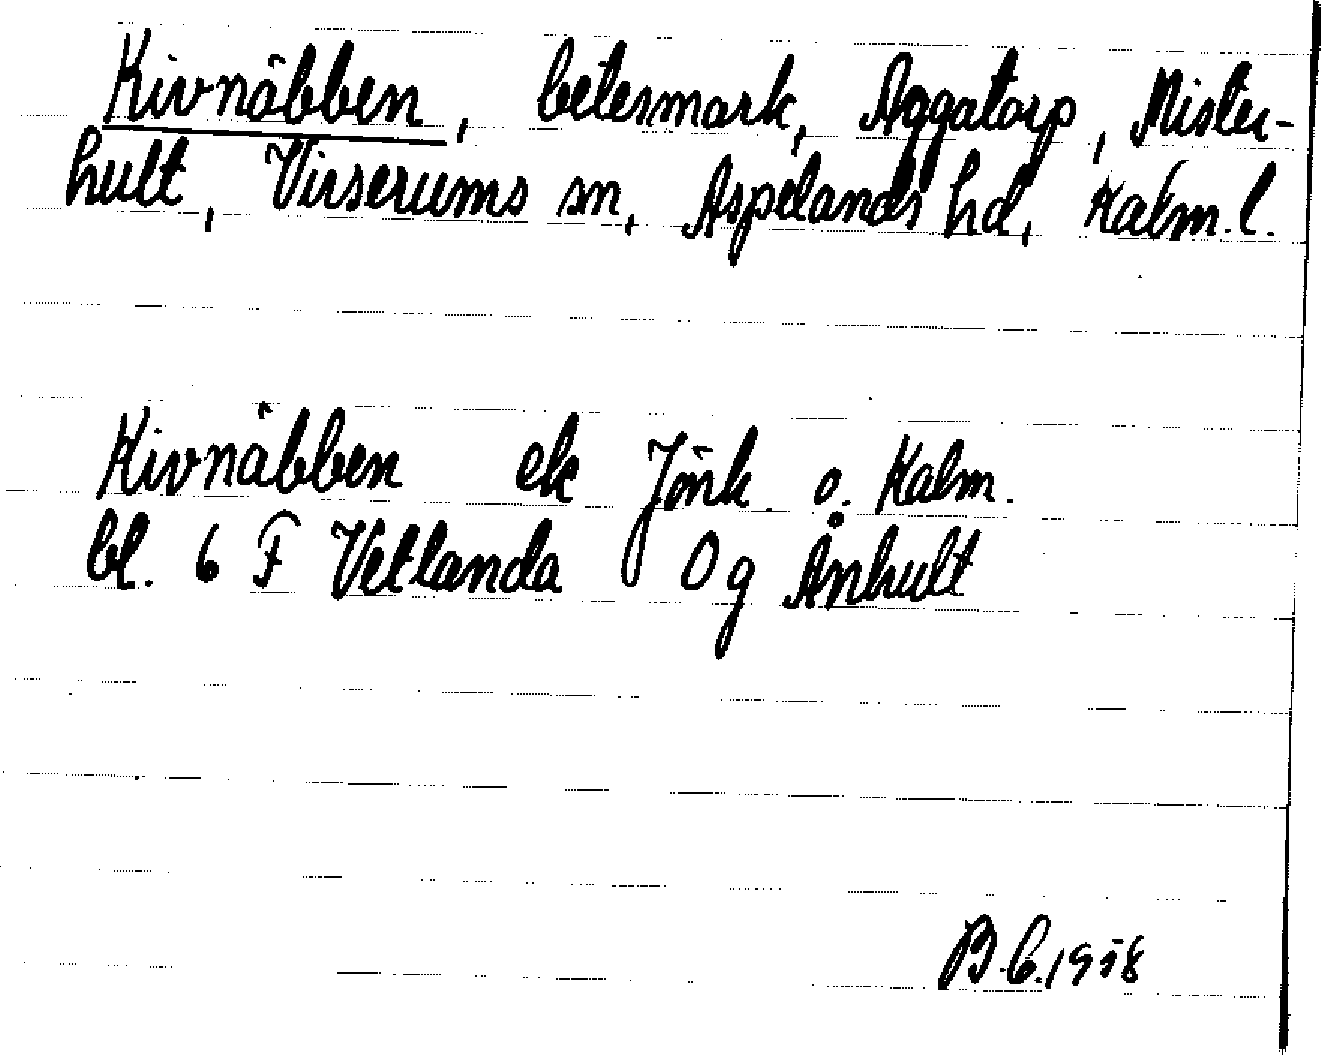 Kivnäbben, betesmark, Aggatorp, Mister-
hult, Virserums sn, Aspelands hd, Kalm. l.
Kivnäbben ek Jönk. o. Kalm.
bl. 6 F Vetlanda 0 g Änhult
B.C. 1958